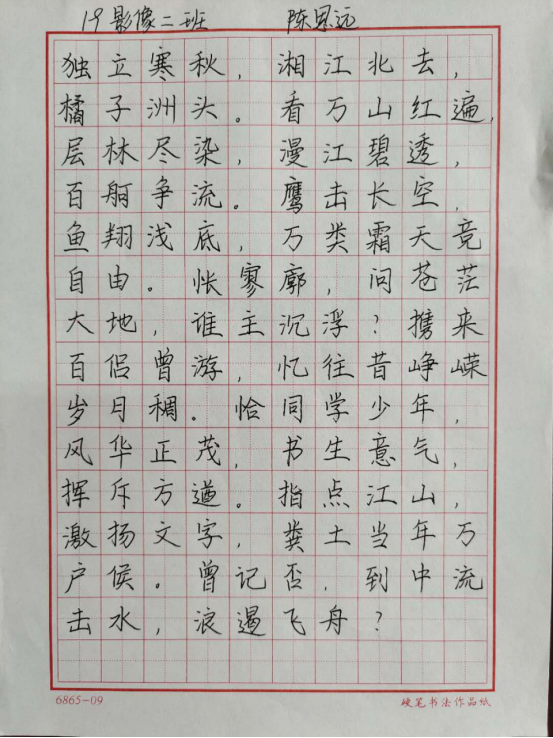 19影像二班 陈思远
独立寒秋，湘江北去，
橘子洲头。看万山红遍，
层林尽染，漫江碧透，
百舸争流。鹰击长空，
鱼翔浅底，万类霜天竞
自由。怅寥廓，问苍茫
大地，谁主沉浮？携来
百侣曾游，忆往昔峥嵘
岁月稠。恰同学少年，
风华正茂，书生意气，
挥斥方遒。指点江山，
激扬文字，粪土当年万
户侯。曾记否，到中流
击水，浪遏飞舟？
6865-09 硬笔书法作品纸